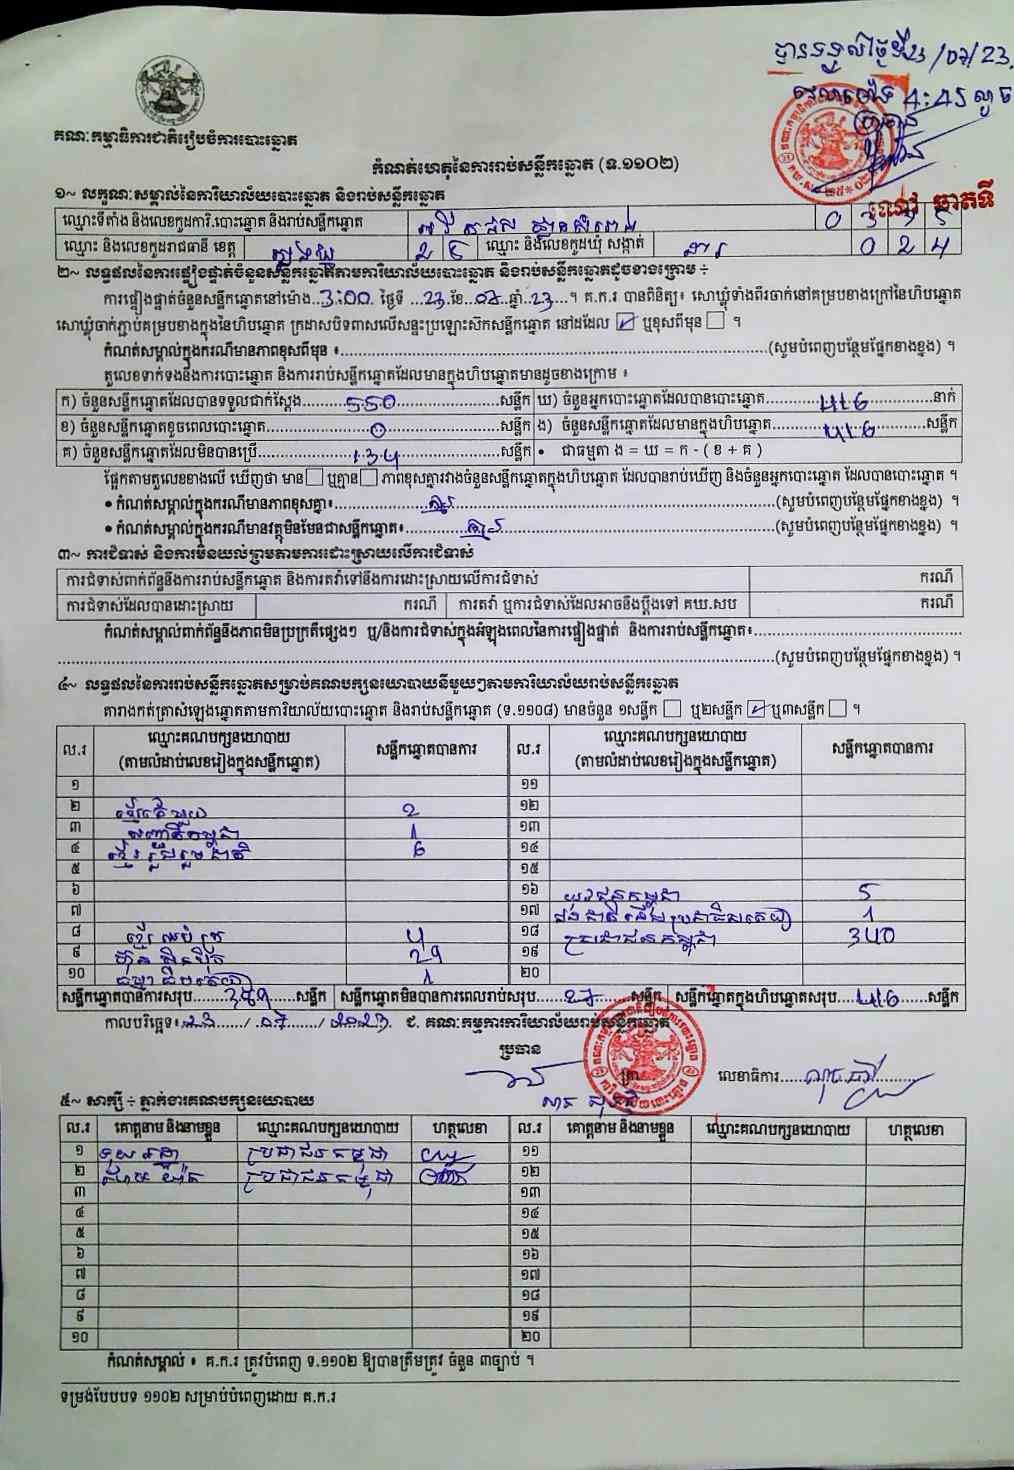 បានទទួលថ្ងៃទី 23/07/23
វេលាម៉ោង 4:45 ល្ងាច
ប្រធាន
គណៈកម្មាធិការជាតិរៀបចំការបោះឆ្នោត
កំណត់ហេតុនៃការរាប់សន្លឹកឆ្នោត (ទ.១១០២)
១~ លក្ខណៈសម្គាល់នៃការិយាល័យបោះឆ្នោត និងរាប់សន្លឹកឆ្នោត
ឈ្មោះទីតាំង និងលេខកូដការិ.បោះឆ្នោត និងរាប់សន្លឹកឆ្នោត
ឈ្មោះ និងលេខកូដរាជធានី ខេត្ត ឈ្មោះ និងលេខកូដឃុំ សង្កាត់ 0 2 4
២~ លទ្ធផលនៃការផ្ទៀងផ្ទាត់ចំនួនសន្លឹកឆ្នោតតាមការិយាល័យបោះឆ្នោត និងរាប់សន្លឹកឆ្នោតដូចខាងក្រោម ÷
ការផ្ទៀងផ្ទាត់ចំនួនសន្លឹកឆ្នោតនៅម៉ោង..3:00. ថ្ងៃទី ..23.ខែ.07.ឆ្នាំ.23....។ គ.ក.រ បានពិនិត្យ៖ សោឃ្លុំទាំងពីរចាក់នៅគម្របខាងក្រៅនៃហិបឆ្នោត
សោឃ្លុំចាក់ភ្ជាប់គម្របខាងក្នុងនៃហិបឆ្នោត ក្រដាសបិទពាសលើសន្ទះប្រឡោះស៊កសន្លឹកឆ្នោត នៅដដែល ☑ ឬខុសពីមុន ☐ ។
កំណត់សម្គាល់ក្នុងករណីមានភាពខុសពីមុន ៖..........(សូមបំពេញបន្ថែមផ្នែកខាងខ្នង) ។
តួលេខទាក់ទងនឹងការបោះឆ្នោត និងការរាប់សន្លឹកឆ្នោតដែលមានក្នុងហិបឆ្នោតមានដូចខាងក្រោម ៖
ក) ចំនួនសន្លឹកឆ្នោតដែលបានទទួលជាក់ស្តែង......550......សន្លឹក ឃ) ចំនួនអ្នកបោះឆ្នោតដែលបានបោះឆ្នោត......416......នាក់
ខ) ចំនួនសន្លឹកឆ្នោតខូចពេលបោះឆ្នោត......0......សន្លឹក ង) ចំនួនសន្លឹកឆ្នោតដែលមានក្នុងហិបឆ្នោត......416......សន្លឹក
គ) ចំនួនសន្លឹកឆ្នោតដែលមិនបានប្រើ......134......សន្លឹក • ជាធម្មតា ង = ឃ = ក - ( ខ + គ )
ផ្អែកតាមតួលេខខាងលើ ឃើញថា មាន ☐ ឬគ្មាន ☐ ភាពខុសគ្នារវាងចំនួនសន្លឹកឆ្នោតក្នុងហិបឆ្នោត ដែលបានរាប់ឃើញ និងចំនួនអ្នកបោះឆ្នោត ដែលបានបោះឆ្នោត ។
• កំណត់សម្គាល់ក្នុងករណីមានភាពខុសគ្នា៖......គ្មាន......(សូមបំពេញបន្ថែមផ្នែកខាងខ្នង) ។
• កំណត់សម្គាល់ក្នុងករណីមានវត្ថុមិនមែនជាសន្លឹកឆ្នោត៖......គ្មាន......(សូមបំពេញបន្ថែមផ្នែកខាងខ្នង) ។
៣~ ការជំទាស់ និងការមិនយល់ព្រមតាមការដោះស្រាយលើការជំទាស់
ការជំទាស់ពាក់ព័ន្ធនឹងការរាប់សន្លឹកឆ្នោត និងការតវ៉ាទៅនឹងការដោះស្រាយលើការជំទាស់ ករណី
ការជំទាស់ដែលបានដោះស្រាយ ករណី ការតវ៉ា ឬការជំទាស់ដែលអាចនឹងប្តឹងទៅ គឃ.សប ករណី
កំណត់សម្គាល់ពាក់ព័ន្ធនឹងភាពមិនប្រក្រតីផ្សេងៗ ឬ/និងការជំទាស់ក្នុងអំឡុងពេលនៃការផ្ទៀងផ្ទាត់ និងការរាប់សន្លឹកឆ្នោត៖..........
..........(សូមបំពេញបន្ថែមផ្នែកខាងខ្នង) ។
៤~ លទ្ធផលនៃការរាប់សន្លឹកឆ្នោតសម្រាប់គណបក្សនយោបាយនីមួយៗតាមការិយាល័យរាប់សន្លឹកឆ្នោត
តារាងកត់ត្រាសំឡេងឆ្នោតតាមការិយាល័យបោះឆ្នោត និងរាប់សន្លឹកឆ្នោត (ទ.១១០៨) មានចំនួន ១សន្លឹក ☐ ឬ២សន្លឹក ☑ ឬ៣សន្លឹក ☐ ។
ល.រ ឈ្មោះគណបក្សនយោបាយ សន្លឹកឆ្នោតបានការ ល.រ ឈ្មោះគណបក្សនយោបាយ សន្លឹកឆ្នោតបានការ
(តាមលំដាប់លេខរៀងក្នុងសន្លឹកឆ្នោត) (តាមលំដាប់លេខរៀងក្នុងសន្លឹកឆ្នោត)
១ ១១
២ ខ្មែរតែមួយ 2 ១២
៣ 1 ១៣
៤ ខ្មែររួបរួមជាតិ 6 ១៤
៥ ១៥
៦ ១៦ យុវជនកម្ពុជា 5
៧ ១៧ 1
៨ 4 ១៨ ប្រជាជនកម្ពុជា 340
៩ ហ៊្វុនស៊ិនប៉ិច 29 ១៩
១០ 1 ២០
សន្លឹកឆ្នោតបានការសរុប......389......សន្លឹក សន្លឹកឆ្នោតមិនបានការពេលរាប់សរុប......27......សន្លឹក សន្លឹកឆ្នោតក្នុងហិបឆ្នោតសរុប......416......សន្លឹក
កាលបរិច្ឆេទ៖ ២៣/០៧/២០២៣ ជ. គណៈកម្មការការិយាល័យរាប់សន្លឹកឆ្នោត
ប្រធាន
ត្រា លេខាធិការ
៥~ សាក្សី ÷ ភ្នាក់ងារគណបក្សនយោបាយ
ល.រ គោត្តនាម និងនាមខ្លួន ឈ្មោះគណបក្សនយោបាយ ហត្ថលេខា ល.រ គោត្តនាម និងនាមខ្លួន ឈ្មោះគណបក្សនយោបាយ ហត្ថលេខា
១ ប្រជាជនកម្ពុជា ១១
២ ប្រជាជនកម្ពុជា ១២
៣ ១៣
៤ ១៤
៥ ១៥
៦ ១៦
៧ ១៧
៨ ១៨
៩ ១៩
១០ ២០
កំណត់សម្គាល់ ៖ គ.ក.រ ត្រូវបំពេញ ទ.១១០២ ឱ្យបានត្រឹមត្រូវ ចំនួន ៣ច្បាប់ ។
ទម្រង់បែបបទ ១១០២ សម្រាប់បំពេញដោយ គ.ក.រ